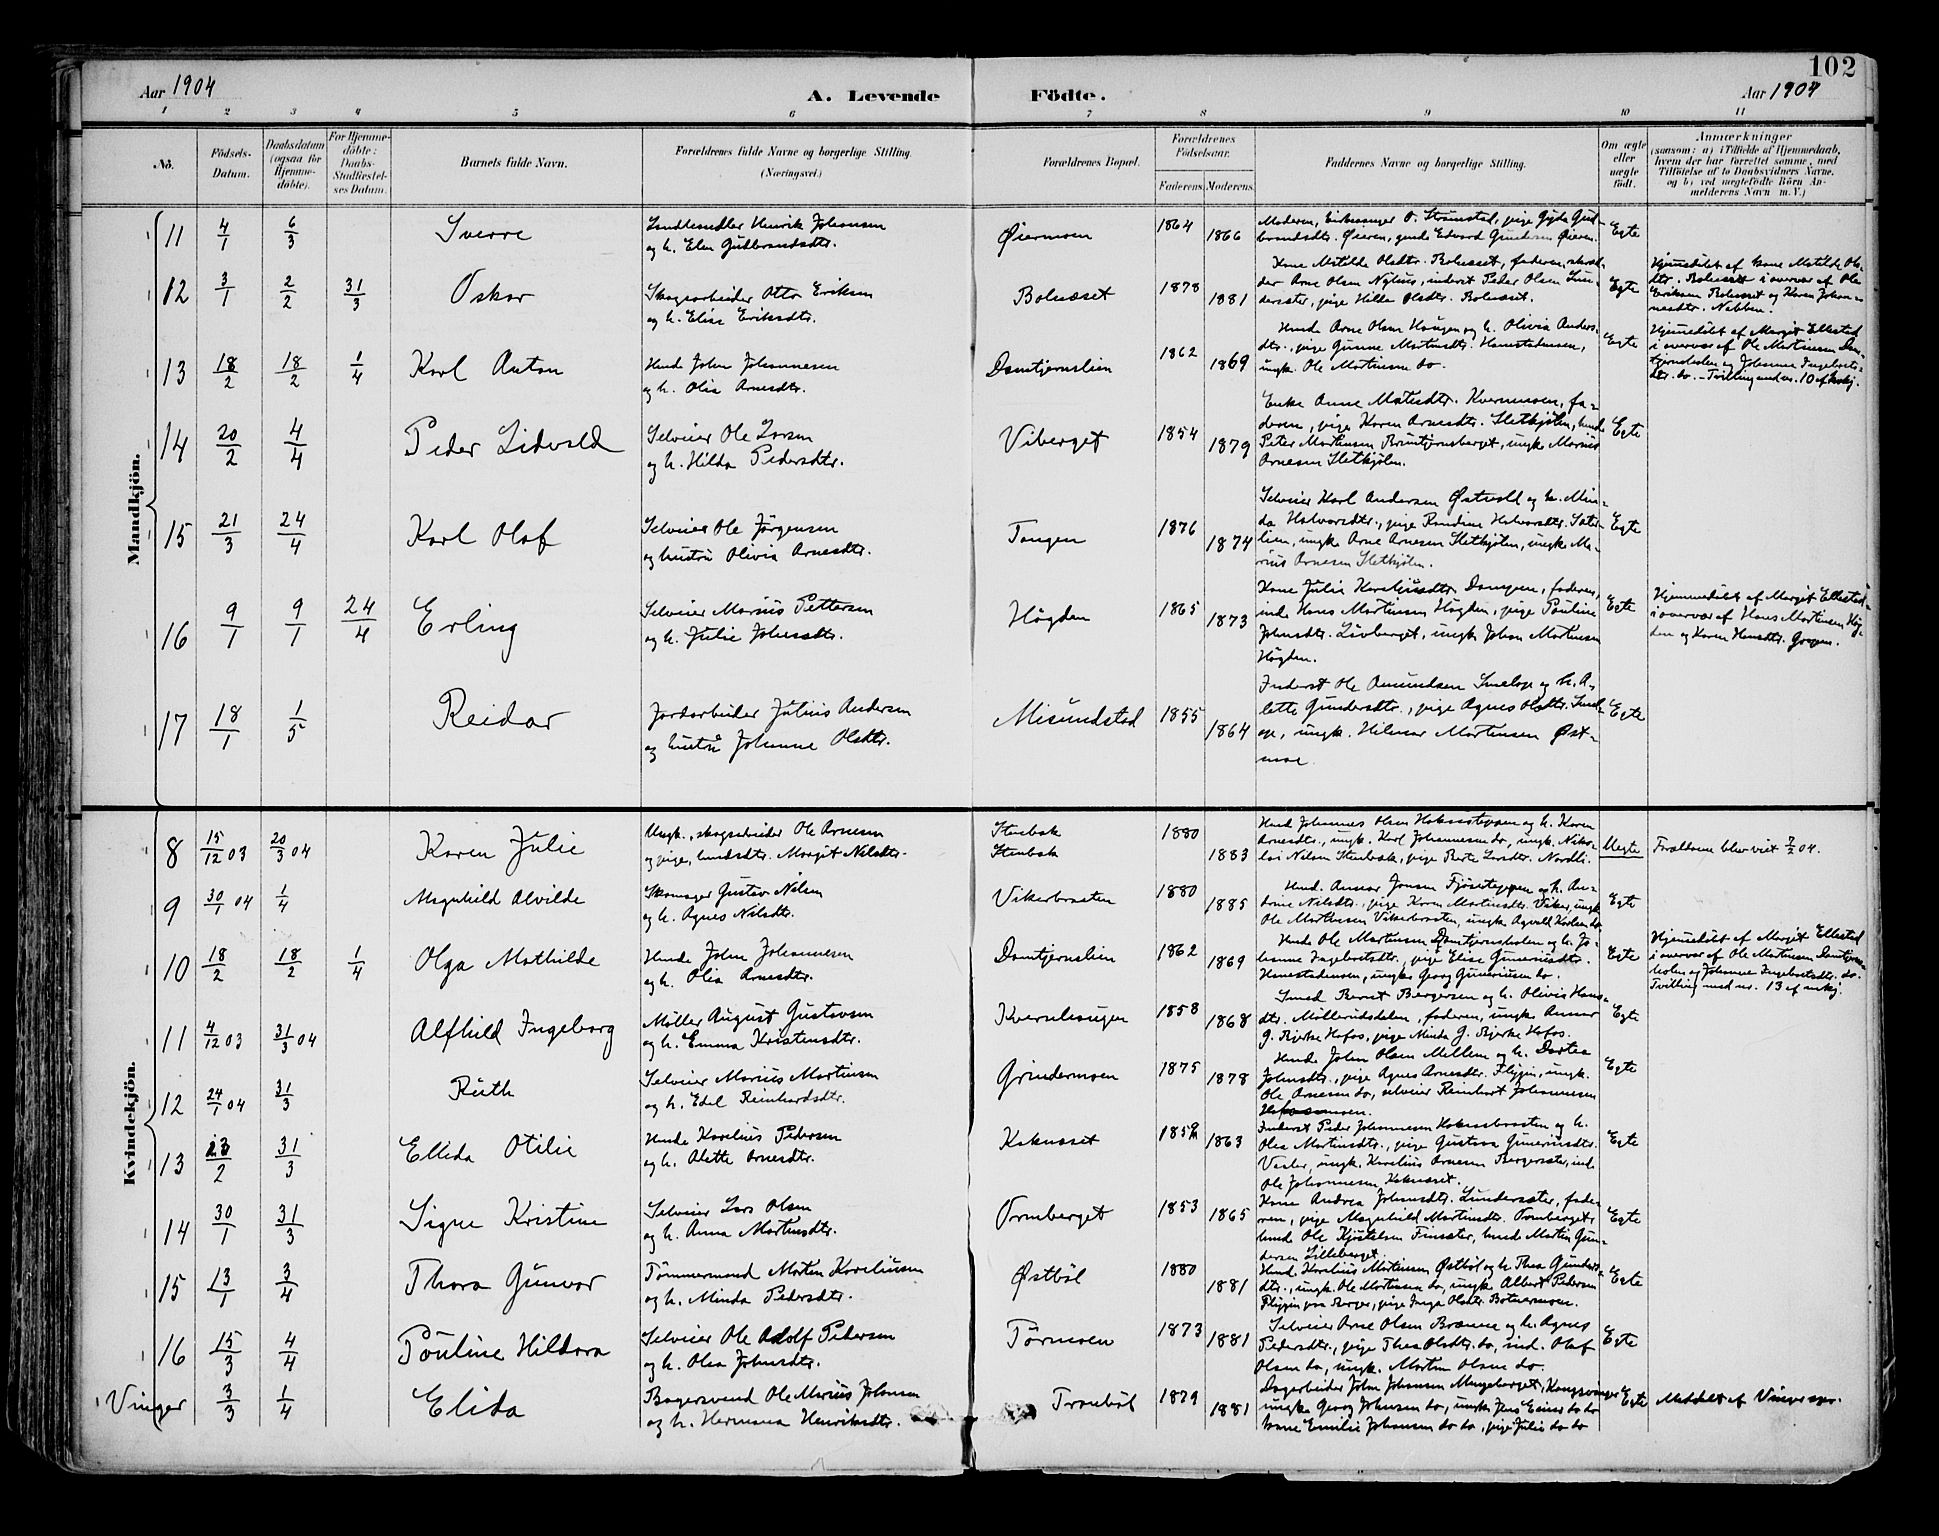 102
Aar 1904
A. Levende Födte.
Aar 1904
1 2 3 4 5 6 7 8 9 10 11
Nö.
Födsels-Datum.
Daabsdatum (ogsaa för Hjemme-döbte).
For Hjemme-döbte: Daabs-Stadfæstel-ses Datum.
Barnets fulde Navn.
Forældrenes fulde Navne og borgerlige Stilling. (Næringsvei.)
Forældrenes Bopæl.
Forældrenes Födselsaar.
Faderens Moderens
Faddernes Navne og borgerlige Stilling.
Om ægte eller uægte födt.
Anmærkninger
(saasom: a) i Tilfælde af Hjemmedaab, hvem der har forrettet samme, med Tilföielse af to Daabsvidners Navne, og b) ved uægtefödte Börn An-melderens Navn m. V.)
Mandkjön.
11 4/1 6/3 Sverre
Landhandler Henrik Johansen
og h. Elen Gudbrandsdtr.
Øiermoen 1864 1866
Moderen, Kirkesanger O. Strømstad, pige Gyda Gud-
brandsdtr. Øieren, gaardb. Edvard Gundersen Øieren.
Egte
12 3/1 2/2 31/3 Oskar
Skogsarbeider Otto Eriksen
og h. Elise Eriksdtr.
Bolnæset 1878 1881
Kone Matilde Olsdtr. Bolnæset, faderen, skræd-
der Arne Olsen Nyhus, inderst Peder Olsen Lun-
dersæter, pige Hilda Olsdtr. Bolnæset.
Egte
Hjemmedöbt af kone Matilde Ols-
dtr. Bolnæset i overvær af Ole
Eriksen Bolnæset og Karen Johan-
nesdtr. Nabben.
13 18/2 18/2 1/4 Karl Anton
Husmd. John Johannesen
og h. Olia Arnesdtr.
Damtjernslien 1862 1869
Husmd. Arne Olsen Haugen og h. Olivia Anders-
dtr., pige Gunda Martinsdtr. Hanestadmoen,
ungk. Ole Martinsen do.
Egte
Hjemmedöbt af Margit Ellestad
i overvær af Ole Martinsen Dam-
tjernsholen og Johanne Ingebrets-
dtr. do. – Tvilling med nr. 10 af kvkj.
14 20/2 4/4 Peder Lidvald
Selveier Ole Larsen
og h. Hilda Pedersdtr.
Viberget 1854 1879
Enke Anne Matisdtr. Kvernmoen, fa-
deren, pige Karen Arnesdtr. Sletkjölen, husmd.
Peter Martinsen Bruntjernsberget, ungk. Marius
Arnesen Sletkjölen.
Egte
15 21/3 24/4 Karl Olaf
Selveier Ole Jørgensen
og hustru Olivia Arnesdtr.
Tangen 1876 1874
Selveier Karl Andersen Østvold og h. Min-
da Halvorsdtr., pige Randine Halvorsdtr. Sæter-
lien, ungk. Arne Arnesen Sletkjölen, ungk. Ma-
rius Arnesen Sletkjölen.
Egte
16 9/1 9/1 24/4 Erling
Selveier Marius Pettersen
og h. Julie Johnsdtr.
Högden 1865 1873
Kone Julia Kareliusdtr. Dampen, faderen,
ind. Hans Martinsen Högden, pige Pauline
Johnsdtr. Livberget, ungk. Johan Martinsen
Högden.
Egte
Hjemmedöbt af Margit Ellestad
i overvær af Hans Martinsen Hög-
den og Karen Hansdtr. Graven.
17 18/1 1/5 Reidar
Jordarbeider Julius Andersen
og hustru Johanne Olsdtr.
Misundstad 1855 1864
Inderst Ole Amundsen Smelop og h. A-
lette Gundersdtr., pige Agnes Olsdtr. Smel-
op, ungk. Helmer Martinsen Øst-
moe.
Egte
Kvindekjön.
8 15/12 03 20/3 04 Karen Julie
Ungk., skogsarbeider Ole Arnesen
og pige, husmdsdtr. Margit Nilsdtr.
Stenbak
Stenbak
1880 1883
Husmd. Johannes Olsen Hokaasstepaen og h. Karen
Arnesdtr., ungk. Karl Johannesen do, ungk. Niko-
lai Nilsen Stenbak, pige Berte Larsdtr. Nordli.
Uegte
Forældrene blev viet 7/2 04.
9 30/1 04 1/4 Magnhild Alvilde
Skomager Gustav Nilsen
og h. Agnes Nilsdtr.
Vikerbraaten 1880 1885
Husmd. Annar Jonsen Fjöseteppen og h. An-
drine Nilsdtr., pige Karen Martinsdtr. Viker, ungk.
Ole Martinsen Vikerbraaten, ungk. Agvald Karlsen do.
Egte
10 18/2 18/2 1/4 Olga Mathilde
Husmd. John Johannesen
og h. Olia Arnesdtr.
Damtjernslien 1862 1869
Husmd. Ole Martinsen Damtjernsholen og h. Jo-
hanne Ingebretsdtr., pige Elise Gunerisdtr.
Hanestadmoen, ungk. Georg Guneriusen do.
Egte
Hjemmedöbt af Margit Ellestad
i overvær af Ole Martinsen Damtjerns-
holen og Johanne Ingebretsdtr. do.
Tvilling med nr. 13 af mkj.
11 4/12 03 31/3 04 Alfhild Ingeborg
Møller August Gustavsen
og h. Emma Kristensdtr.
Kvernhaugen 1858 1868
Smed Bernt Bergersen og h. Olivia Hans-
dtr. Møllerudsdalen, faderen, ungk. Annar
G. Bjerke Hofos, pige Minda G. Bjerke Hofos.
Egte
12 24/1 04 31/3 Ruth
Selveier Marius Martinsen
og h. Edel Reinhardsdtr.
Grindermoen 1875 1878
Husmd. John Olsen Mellem og h. Dortea
Johnsdtr., pige Agnes Arnesdtr. Fliggin, ungk.
Ole Arnesen do, selveier Reinhart Johannesen
Egte
13 23/2 31/3 Ellida Otilie
Husmd. Karelius Pedersen
og h. Alette Arnesdtr.
Kaknæset 1859 1863
Inderst Peder Johannesen Hokaasbraaten og h.
Olea Martinsdtr., pige Gustava Guneriusdtr.
Vesler, ungk. Karelius Arnesen Bergersæter, ind.
Ole Johannesen Kaknæset.
Egte
14 30/1 31/3 Signe Kristine
Selveier Lars Olsen
og h. Anna Martinsdtr.
Ormberget 1853 1865
Kone Andrea Johnsdtr. Lundersæter, fade-
ren, pige Magnhild Martinsdtr. Ormberget,
husmd. Ole Kjöstelsen Finsæter, husmd. Martin Gun-
dersen Lilleberget.
Egte
15 13/1 3/4 Thora Gunvor
Tømmermand Morten Kareliusen
og h. Minda Pedersdtr.
Østböl 1880 1881
Husmd. Karelius Martinsen Østböl og h. Thea Gunders-
dtr., ungk. Ole Martinsen do, ungk. Albert Pedersen
Fliggin paa Berger, pige Inga Olsdtr. Botnermoen.
Egte
16 15/3 4/4 Pauline Hildora
Selveier Ole Adolf Pedersen
og h. Olea Johnsdtr.
Törmoen 1873 1881
Selveier Arne Olsen Brænne og h. Agnes
Pedersdtr., pige Thea Olsdtr. do, ind. Olaf
Olsen do, ungk. Martin Olsen do.
Egte
Vinger 3/3 1/4 Elida
Bagersvend Ole Marius Johansen
og h. Hermana Henriksdtr.
Tranböl 1879 1881
Dagarbeider John Johansen Mageberget, Kongsvinger
ungk. Georg Johansen do, ungk. Jens Einar do do
kone Emilie Johansen do do, pige Julie do do
Egte
Meddelt af Vinger spr.